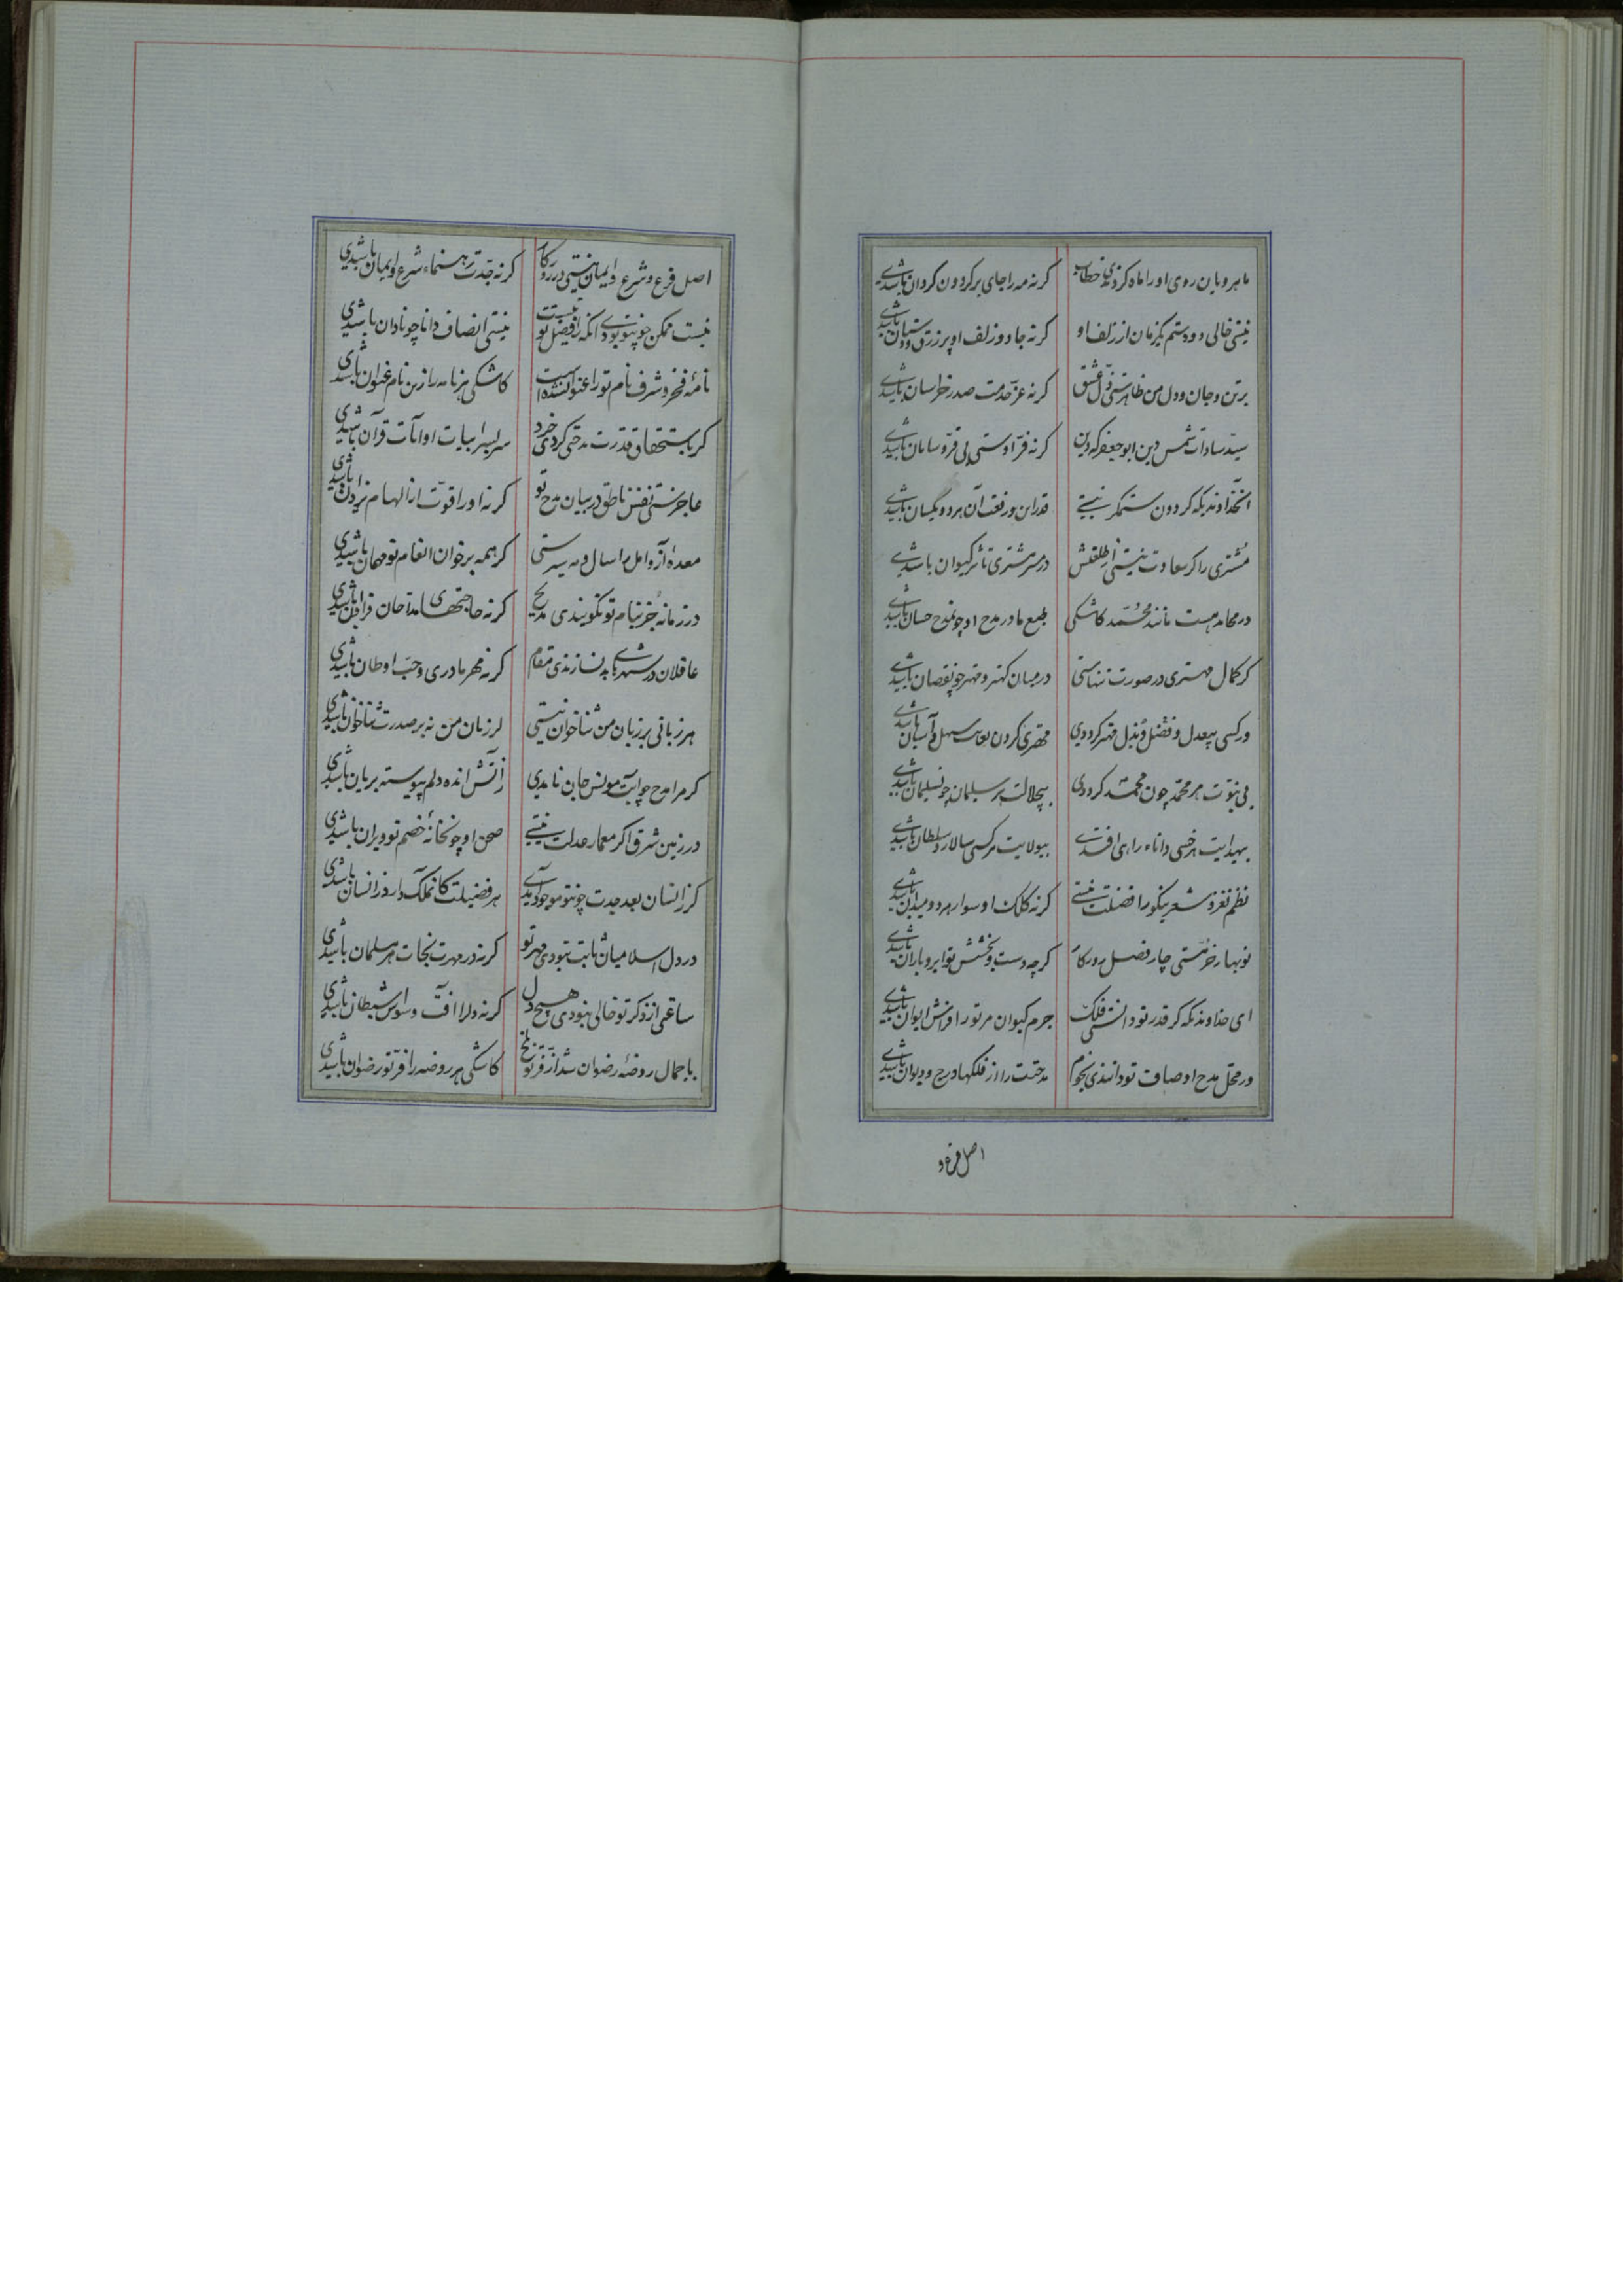 ماهرویان روی او را ماه کردندی خطاب کرنه مه را جای بر کردون کردان باشدی
نیستی خالی دو دستم یکزمان از زلف او کرنه جادو زلف او پر زرق و دستان باشدی
بر تن و جان و دل من ظاهرستی ذل عشق کرنه عز خدمت صدر خراسان باشدی
سید سادات شمس دین ابوجعفر که دین کرنه فر اوستی بی فر و سامان باشدی
آنخداوندیکه کردون ستمکر نیستی قدر این و رفعت آن هر دو یکسان باشدی
مشتری را کر سعادت نیستی از طلعتش در سر مشتری تأثیر کیوان باشدی
در محامد هست مانند محمد کاشکی طبع ما در مدح او چونمدح حسان باشدی
کر کمال مهتری در صورت تنهاستی در میان کهتر و مهتر چو نقصان باشدی
ور کسی بیعدل و فضل و بذل مهتر کرددی مهتری کردن بغایت سهل و آسان باشدی
بی نبوت هر محمد چون محمد کرددی بیجلالت هر سلیمان چو نسلیمان باشدی
بهدایت هر خسی داناء راه افتدی بیولایت هر کسی سالار و سلطان باشدی
نظم نغز و شعر نیکو را فضیلت نیستی کرنه کلک او سوار هر دو میدان باشدی
نوبهار خرمستی چار فصل روزکار کرچه دست و بخشش تو ابر و باران باشدی
ای خداوندیکه کر قدر تو دانستی فلک جرم کیوان مر تو را فراش ایوان باشدی
در محل مدح اوصاف تو دانندی نجوم مدحتت را از فلکها درج و دیوان باشدی
اصل فرع و
اصل فرع و شرع و ایمان نیستی در روزکار کرنه جدت رهنماء شرع و ایمان باشدی
نیست ممکن چونتو بودی آنکه را فضل تو نیست نیستی انصاف دانا چو نادان باشدی
نامه فخر و شرف نام تو را عنوان شده است کاشکی هر نامه را زین نام عنوان باشدی
کر باستحقاق قدرت مدحتی کردی خرد سربسر ابیات او آیات قرآن باشدی
عاجزستی نفس ناطق در بیان مدح تو کرنه او را قوت از الهام یزدان باشدی
معده آز و امل را سال و مه سیرستی کر همه بر خوان انعام تو مهمان باشدی
در زمانه جز بنام تو نکویندی مدیح کرنه حاجتهای مداحان فراوان باشدی
عاقلان در شهرهای بد نسازندی مقام کرنه مهر مادری و حب اوطان باشدی
هر زبانی بر زبان من ثناخوان نیستی کر زبان من نه بر صدرت ثناخوان باشدی
کر مرا مدح چو آبت مونس جان نامدی ز آتش انده دلم پیوسته بریان باشدی
در زمین شرق اکر معمار عدلت نیستی صحن او چونخانه خصم تو ویران باشدی
کز انسان بعد جدت چونتو موجود آمدی هر فضیلت کان ملک دارد ز انسان باشدی
در دل اسلامیان ثابت نبودی مهر تو کرنه در مهرت نجات هر مسلمان باشدی
ساعتی از ذکر تو خالی نبودی هیچ دل کرنه دلرا آفت وسواس شیطان باشدی
با جمال روضه رضوان شد از فر تو بلخ کاشکی هر روضه را فر تو رضوان باشدی